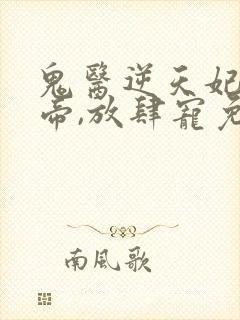 鬼醫逆天妃
帝,放肆寵免
南風歌